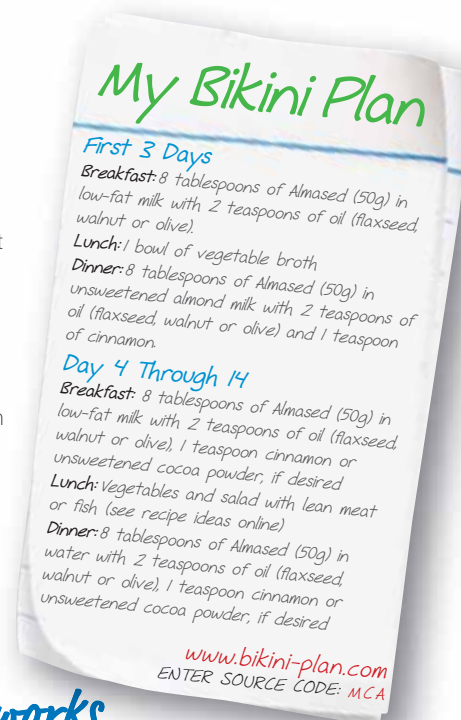 My Bikini Plan
First 3 Days
Breakfast: 8 tablespoons of Almased (50g) in
low-fat milk with 2 teaspoons of oil (flaxseed,
walnut or olive).
Lunch: 1 bowl of vegetable broth
Dinner: 8 tablespoons of Almased (50g) in
unsweetened almond milk with 2 teaspoons of
oil (flaxseed, walnut or olive) and 1 teaspoon
of cinnamon.
Day 4 Through 14
Breakfast: 8 tablespoons of Almased (50g) in
low-fat milk with 2 teaspoons of oil (flaxseed,
walnut or olive), 1 teaspoon cinnamon or
unsweetened cocoa powder, if desired
Lunch: Vegetables and salad with lean meat
or fish (see recipe ideas online)
Dinner: 8 tablespoons of Almased (50g) in
water with 2 teaspoons of oil (flaxseed,
walnut or olive), 1 teaspoon cinnamon or
unsweetened cocoa powder, if desired
www.bikini-plan.com
ENTER SOURCE CODE: MCA